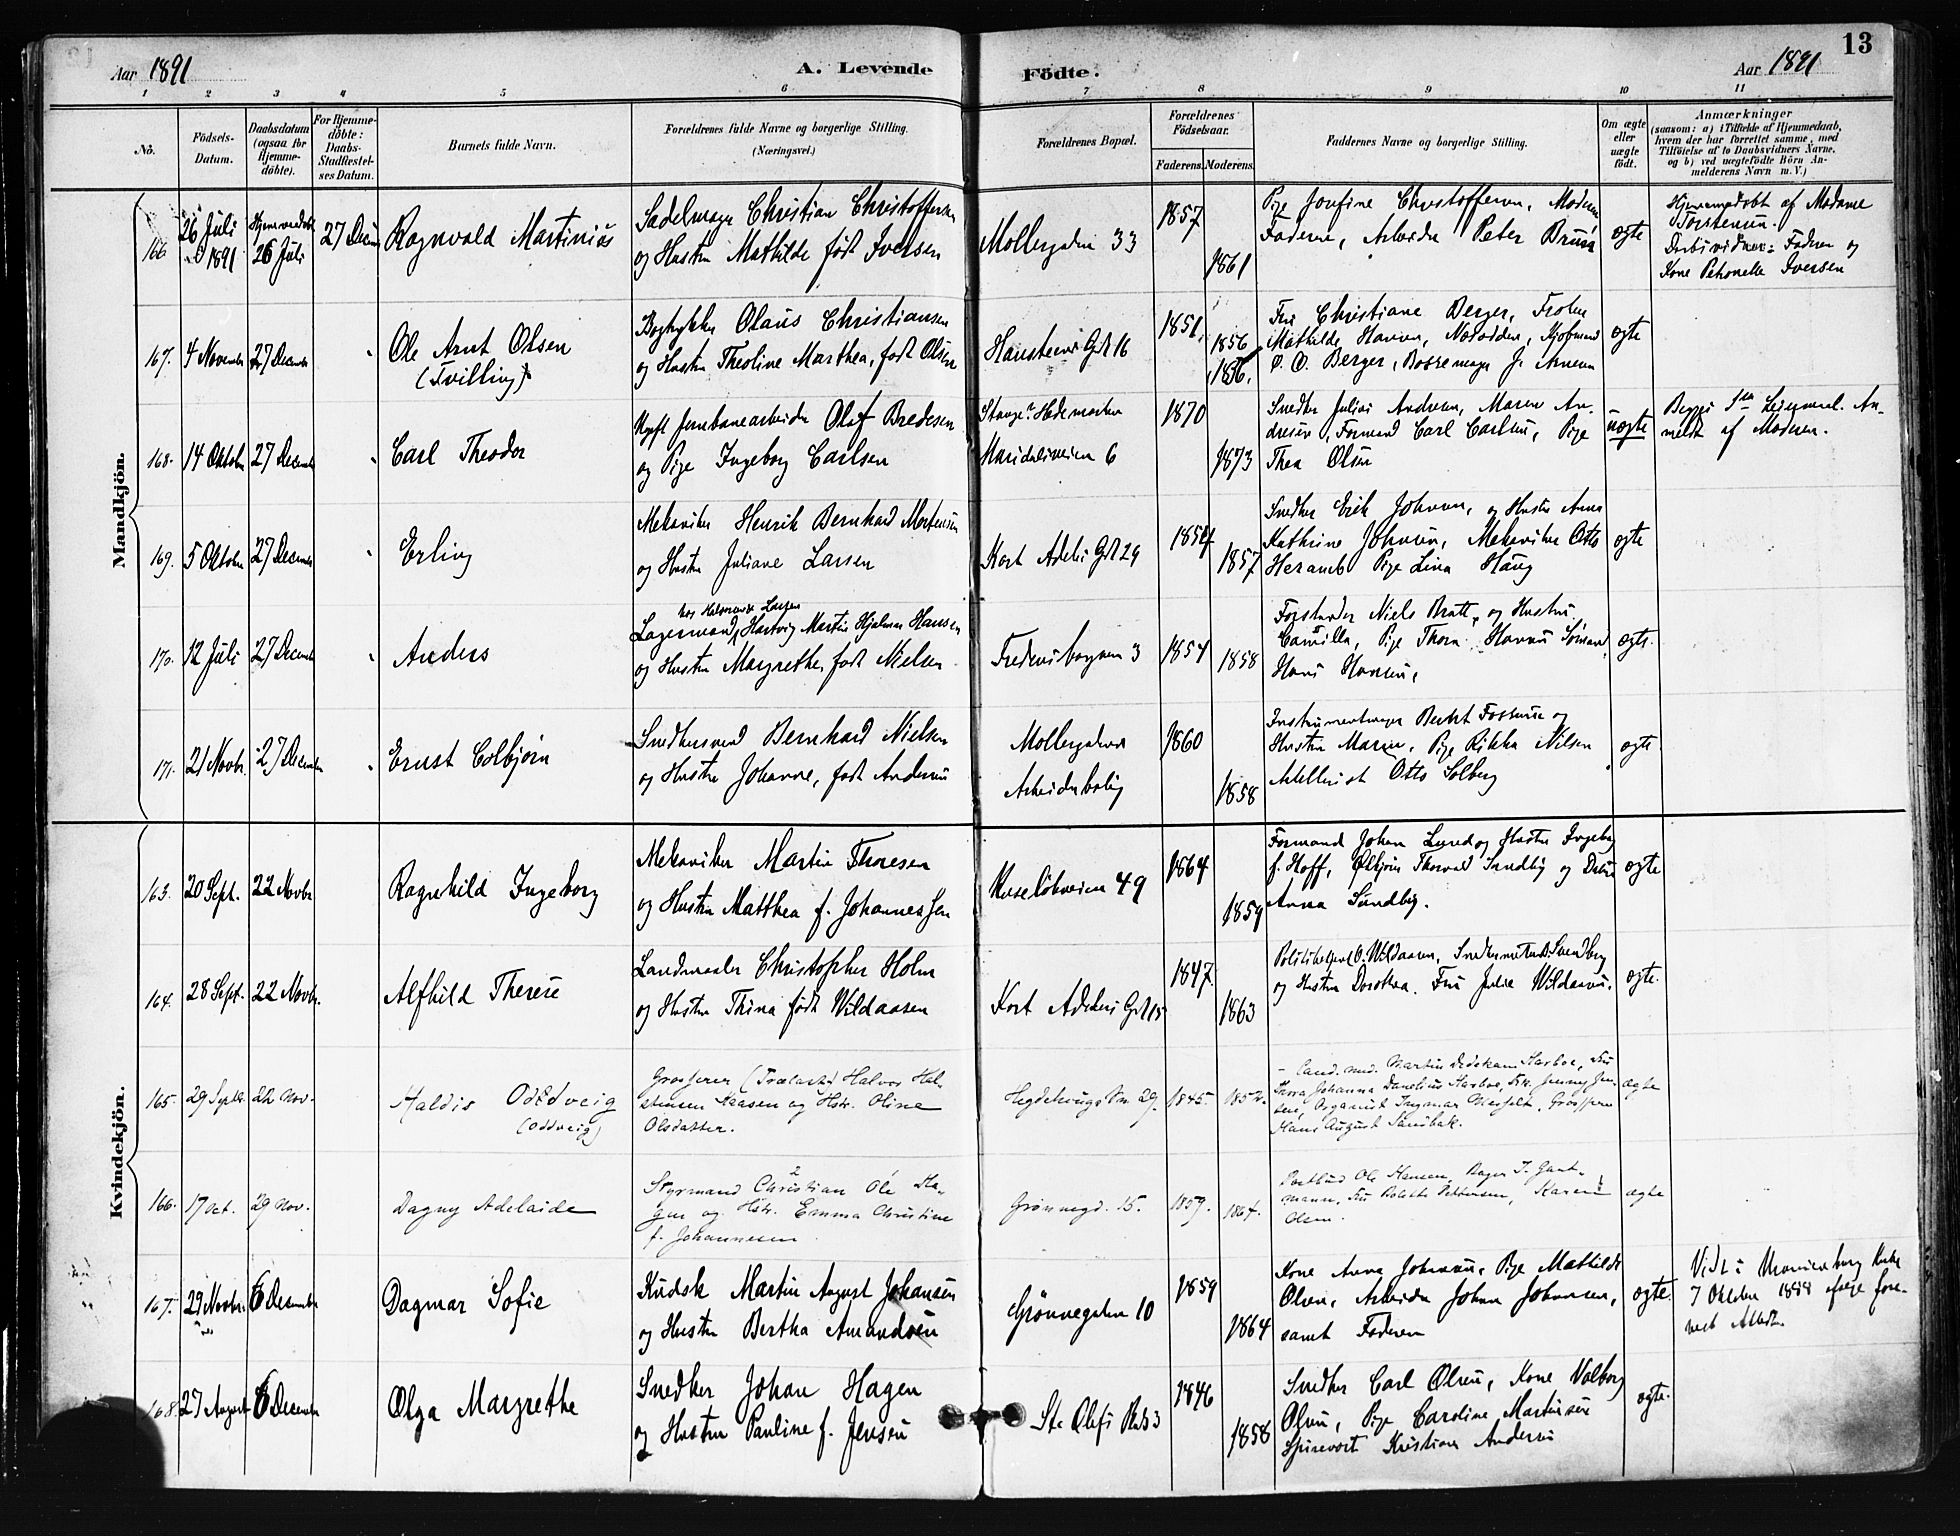 13
Aar 1891
A. Levende
Födte.
Aar 1891
1 2 3 4 5 6 7 8 9 10 11
No.
Födsels-Datum.
Daabsdatum (ogsaa for Hjemme-döbte).
For Hjemme-döbte: Daabs-Stadfæstel-ses Datum.
Barnets fulde Navn.
Forældrenes fulde Navne og borgerlige Stilling. (Næringsvei.)
Forældrenes Bopæl.
Forældrenes Födselsaar.
Faderens. Moderens.
Faddernes Navne og borgerlige Stilling.
Om ægte eller uægte födt.
Anmærkninger
(saasom: a) i Tilfælde af Hjemmedaab,
hvem der har forrettet samme, med
Tilföielse af to Daabsvidners Navne,
og b) ved uægtefödte Börn An-
melderens Navn m. V.)
Mandkjön.
166. 26 Juli 1891 Hjemmedøbt 26 Juli 27 Decem Ragnvald Martinius
Sadelmager Christian Christoffersen
og Hustru Mathilde født Iversen
Møllergaden 33 1857 1861
Pige Josefine Christoffersen, Moderen
Faderen, Arbeider Peter Bruun
ægte
Hjemmedøbt af Madame
Torstensen.
Daabsvidner: Faderen og
Kone Petronelle Iversen
167. 4 November 27 December Ole Arnt Olsen
(Tvilling)
Olaus Christiansen
og Hustru Theoline Marthea, født Olsen
Hausteens Gd. 16 1851. 1856 1856.
Fru Christiane Berger, Frøken
Mathilde Hansen, Kjøbmand
O. O. Berger, J. Arnesen
ægte
168. 14 Oktober 27 December Carl Theodor
Ugift Jernbanearbeider Olaf Bredesen
og Pige Ingeborg Carlsen
Stange Hedemarken
Maridalsveien 6 1870 1873
Snedker Julius Andresen, Maren An-
dresen, Formand Carl Carlsen, Pige
Thea Olsen
uægte
Begges 1ste Leiermaal. An-
meldt af Moderen.
169. 5 Oktober 27 December Erling
Mekaniker Henrik Bernhard Mortensen
og Hustru Juliane Larsen
Kort Adelers Gd. 29 1857
Snedker Erik Johnsen, og Hustru Anna
Kathrine Johnsen, Mekaniker Otto
Heramb Pige Lina Haug
ægte
170. 12 Juli 27 December Anders
Lagermand, Hartvig Martin Hjalmar Hansen
og Hustru Margrethe, født Nielsen
Fredensborgveien 3 1854 1858
Forstander Niels Bratt, og Hustru
Camilla, Pige Thora Hansen Sømand
Hans Hansen,
ægte.
171. 21 Novbr. 27 December Ernst Colbjørn
Snedkersvend Bernhard Nielsen
og Hustru Johanne, født Andersen
Møllergadens
Arbeiderbolig 1860 1858
Instrumentmager Berht Fossum og
Hustru Maren, Pige Rikka Nilsen
Artillerist Otto Solberg
ægte
Kvindekjön.
163. 20 Sept. 22 Novbr Ragnhild Ingeborg
Mekaniker Martin Thoresen
og Hustru Matthea f. Johannessen
Ruseløkveien 49 1864 1859
Formand Johan Lund og Hustru Ingeborg
f. Hoff, Thorvald Sundby og
Anna Sundby.
ægte
164. 28 Sept. 22 Novbr. Alfhild Therese
Landmaaler Christopher Holm
og Hustru Thina født Vildaasen
Kort Adelers Gd. 15 1847. 1863
Politibetjent O. Wildaasen, Svendsberg
og Hustru Dorothea. Fru Julie Wildaasen.
ægte.
165. 29 Septbr. 22 Nov. Haldis Oddveig
(Oddveig)
Grosserer (Trælast) Halvor Hal-
stensen Aaasen og Hstr. Oline
Olsdatter.
Hegdehaugsvn. 29. 1845. 1852.
Cand. med. Martin Dedekam Harboe, Fru
Thora Johanna Danelius Harboe, Frk. Jenny Jen-
sen, Organist Ingmar, Grosserer
Hans August Sandbak.
ægte
166. 17 Oct. 29 Nov. Dagny Adelaide
Styrmand Christian Ole Ha-
gen og Hstr. Emma Christine
f. Johannesen
Grønnegd. 15. 1859. 1864.
Postbud Ole Hansen, Bager J. Gant-
mann, Fru Bolette Pettersen, Karen
Olsen.
ægte
167. 29 Novbr. 6 December Dagmar Sofie
Kudsk Martin August Johansen
og Hustru Bertha Amandsen
Grønnegaden 10 1859 1864
Kone Anna Johansen, Pige Mathilde
Olsen, Arbeider Johan Johansen,
samt Faderen
ægte.
Viet i Kirke
7 Oktober 1888 ifølge fore-
vist Attest.
168. 27 August 6 December Olga Margrethe
Snedker Johan Hagen
og Hustru Pauline f. Jensen
St. Olafs Plads 3 1846 1858
Snedker Carl Olsen, Kone Valborg
Olsen, Pige Caroline Martinsen
Kristian Andersen
ægte.